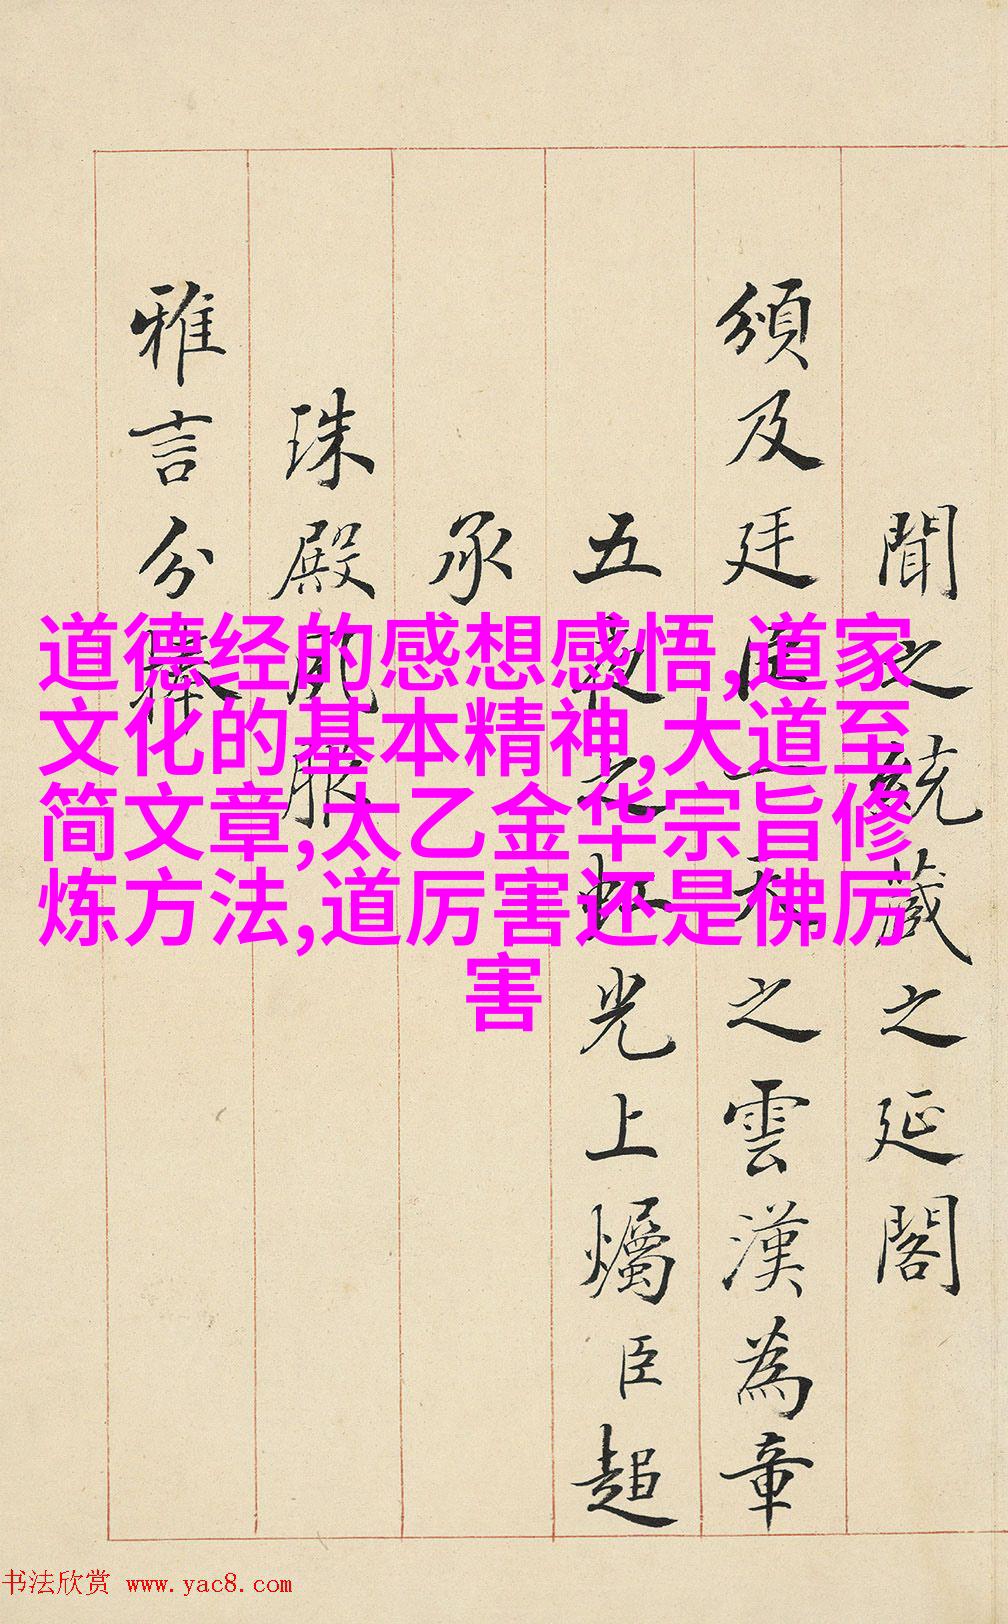 聞之統藏之延閣
頒及廷臣一天之雲漢為章
五夜之虹光上爥臣超
承
珠殿夙服
雅言分捧
道德经的感想感悟,道家
文化的基本精神,大道至
简文章,太乙金华宗旨修
炼方法,道厉害还是佛厉
害
书法欣赏 www.yac8.com